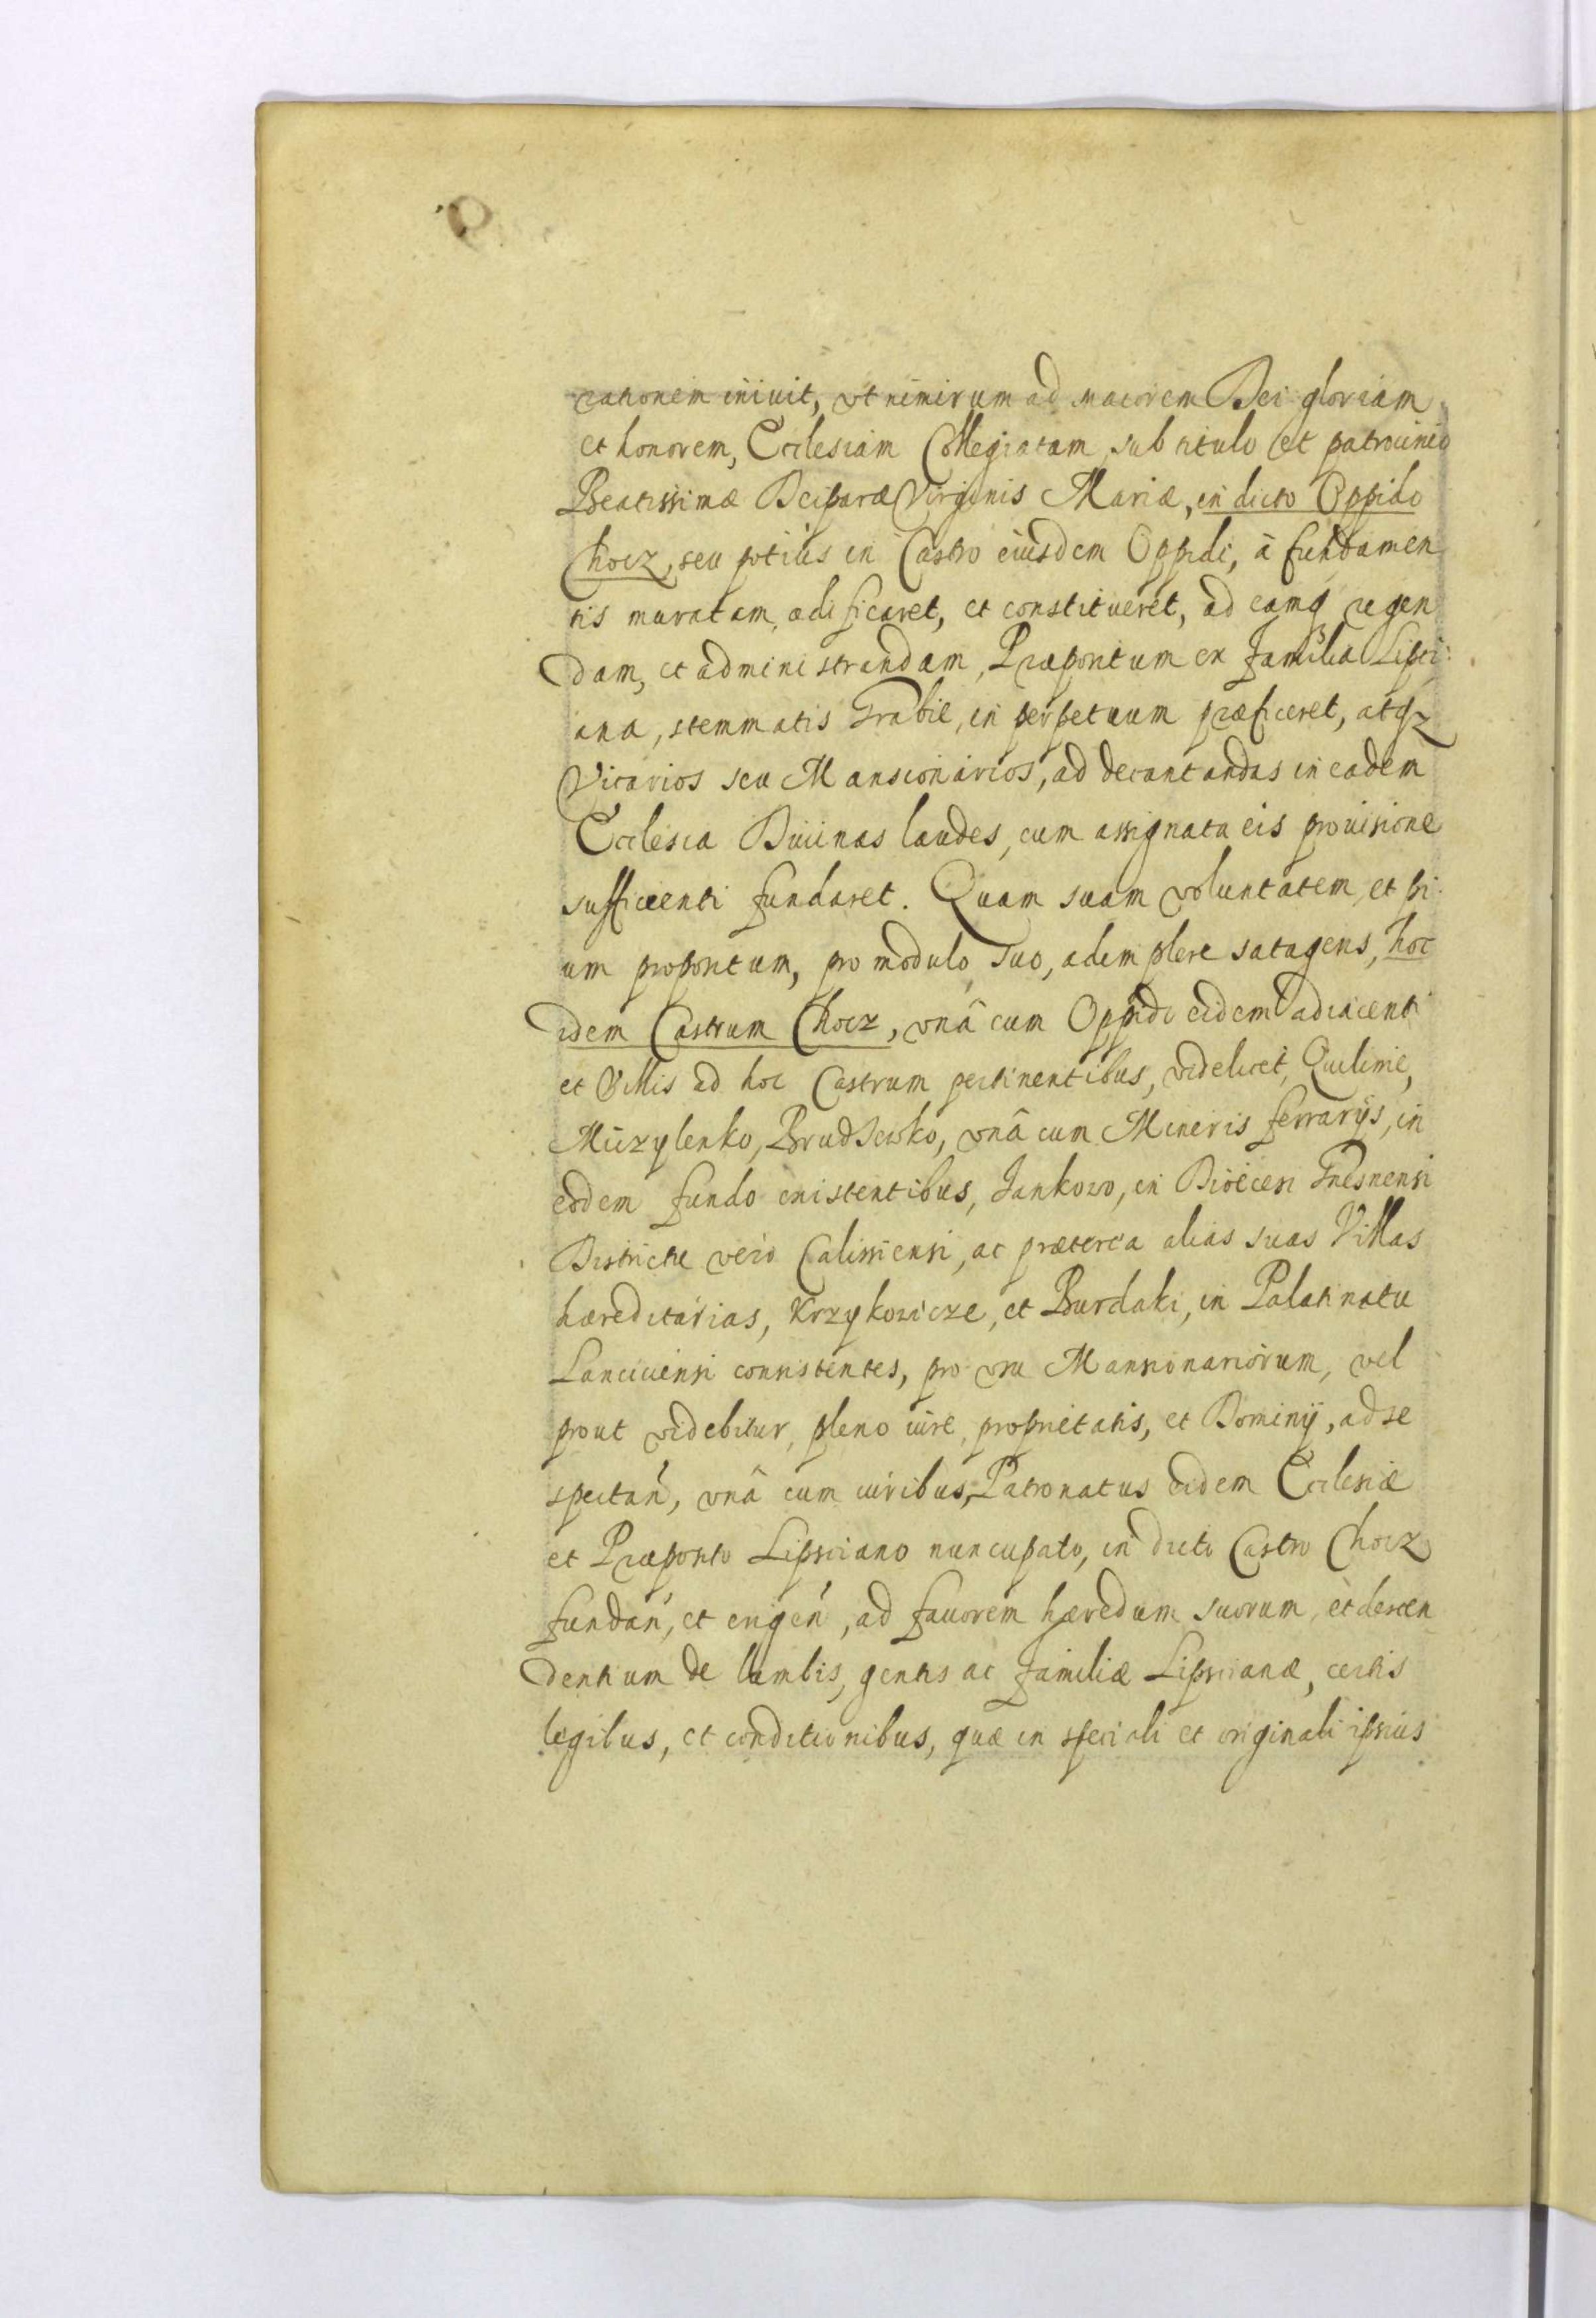 rationem iniuit, vt nimirum ad maiorem Dei gloriam
et honorem, Ecclesiam Collegiatam, sub titulo et patrocinio
Beatissimæ Deiparæ Virginis Mariæ, in dicto Oppido
Chocz, seu potius in Castro eiusdem Oppidi, à fundamen
tis muratam, ædificaret, et constitueret, ad eamq regen
dam, et administrandam, Præpositum ex familia Lipsci
ana, stemmatis Grabie, in perpetuum præficeret, atqz
Vicarios seu Mansionarios, ad decantandas in eadem
Ecclesia Diuinas laudes, cum assignata eis prouisione
sufficienti fundaret. Quam suam voluntatem, et pi
um propositum, pro modulo suo, adimplere satagens, hoc
idem Castrum Chocz, vnâ cum Oppido eidem adiacenti
et Villis ad hoc Castrum pertinentibus, videlicet, Quilinie,
Nuzylenko, Brudzewko, vnâ cum Mineris ferrarijs, in
eodem fundo existentibus, Jankowo, in Dioecesi Gnesnensi
Districtu verò Calissiensi, ac præterea alias suas Villas
hæreditarias, Krzykowicze, et Burdaki, in Palatinatu
Lanciciensi consistentes, pro vsu Mansionariorum, vel
prout videbitur, pleno iure, proprietatis, et Dominij, ad se
spectan̄, vnâ cum iuribus, Patronatus eidem Ecclesiæ
et Præposito Lipsciano nuncupato, in dicto Castro Chocz
fundan̄, et erigen̄, ad fauorem hæredum suorum, et descen
dentium de lumbis, gentis ac familiæ Lipscianæ, certis
legibus, et conditionibus, quæ in speciali et originali ipsius